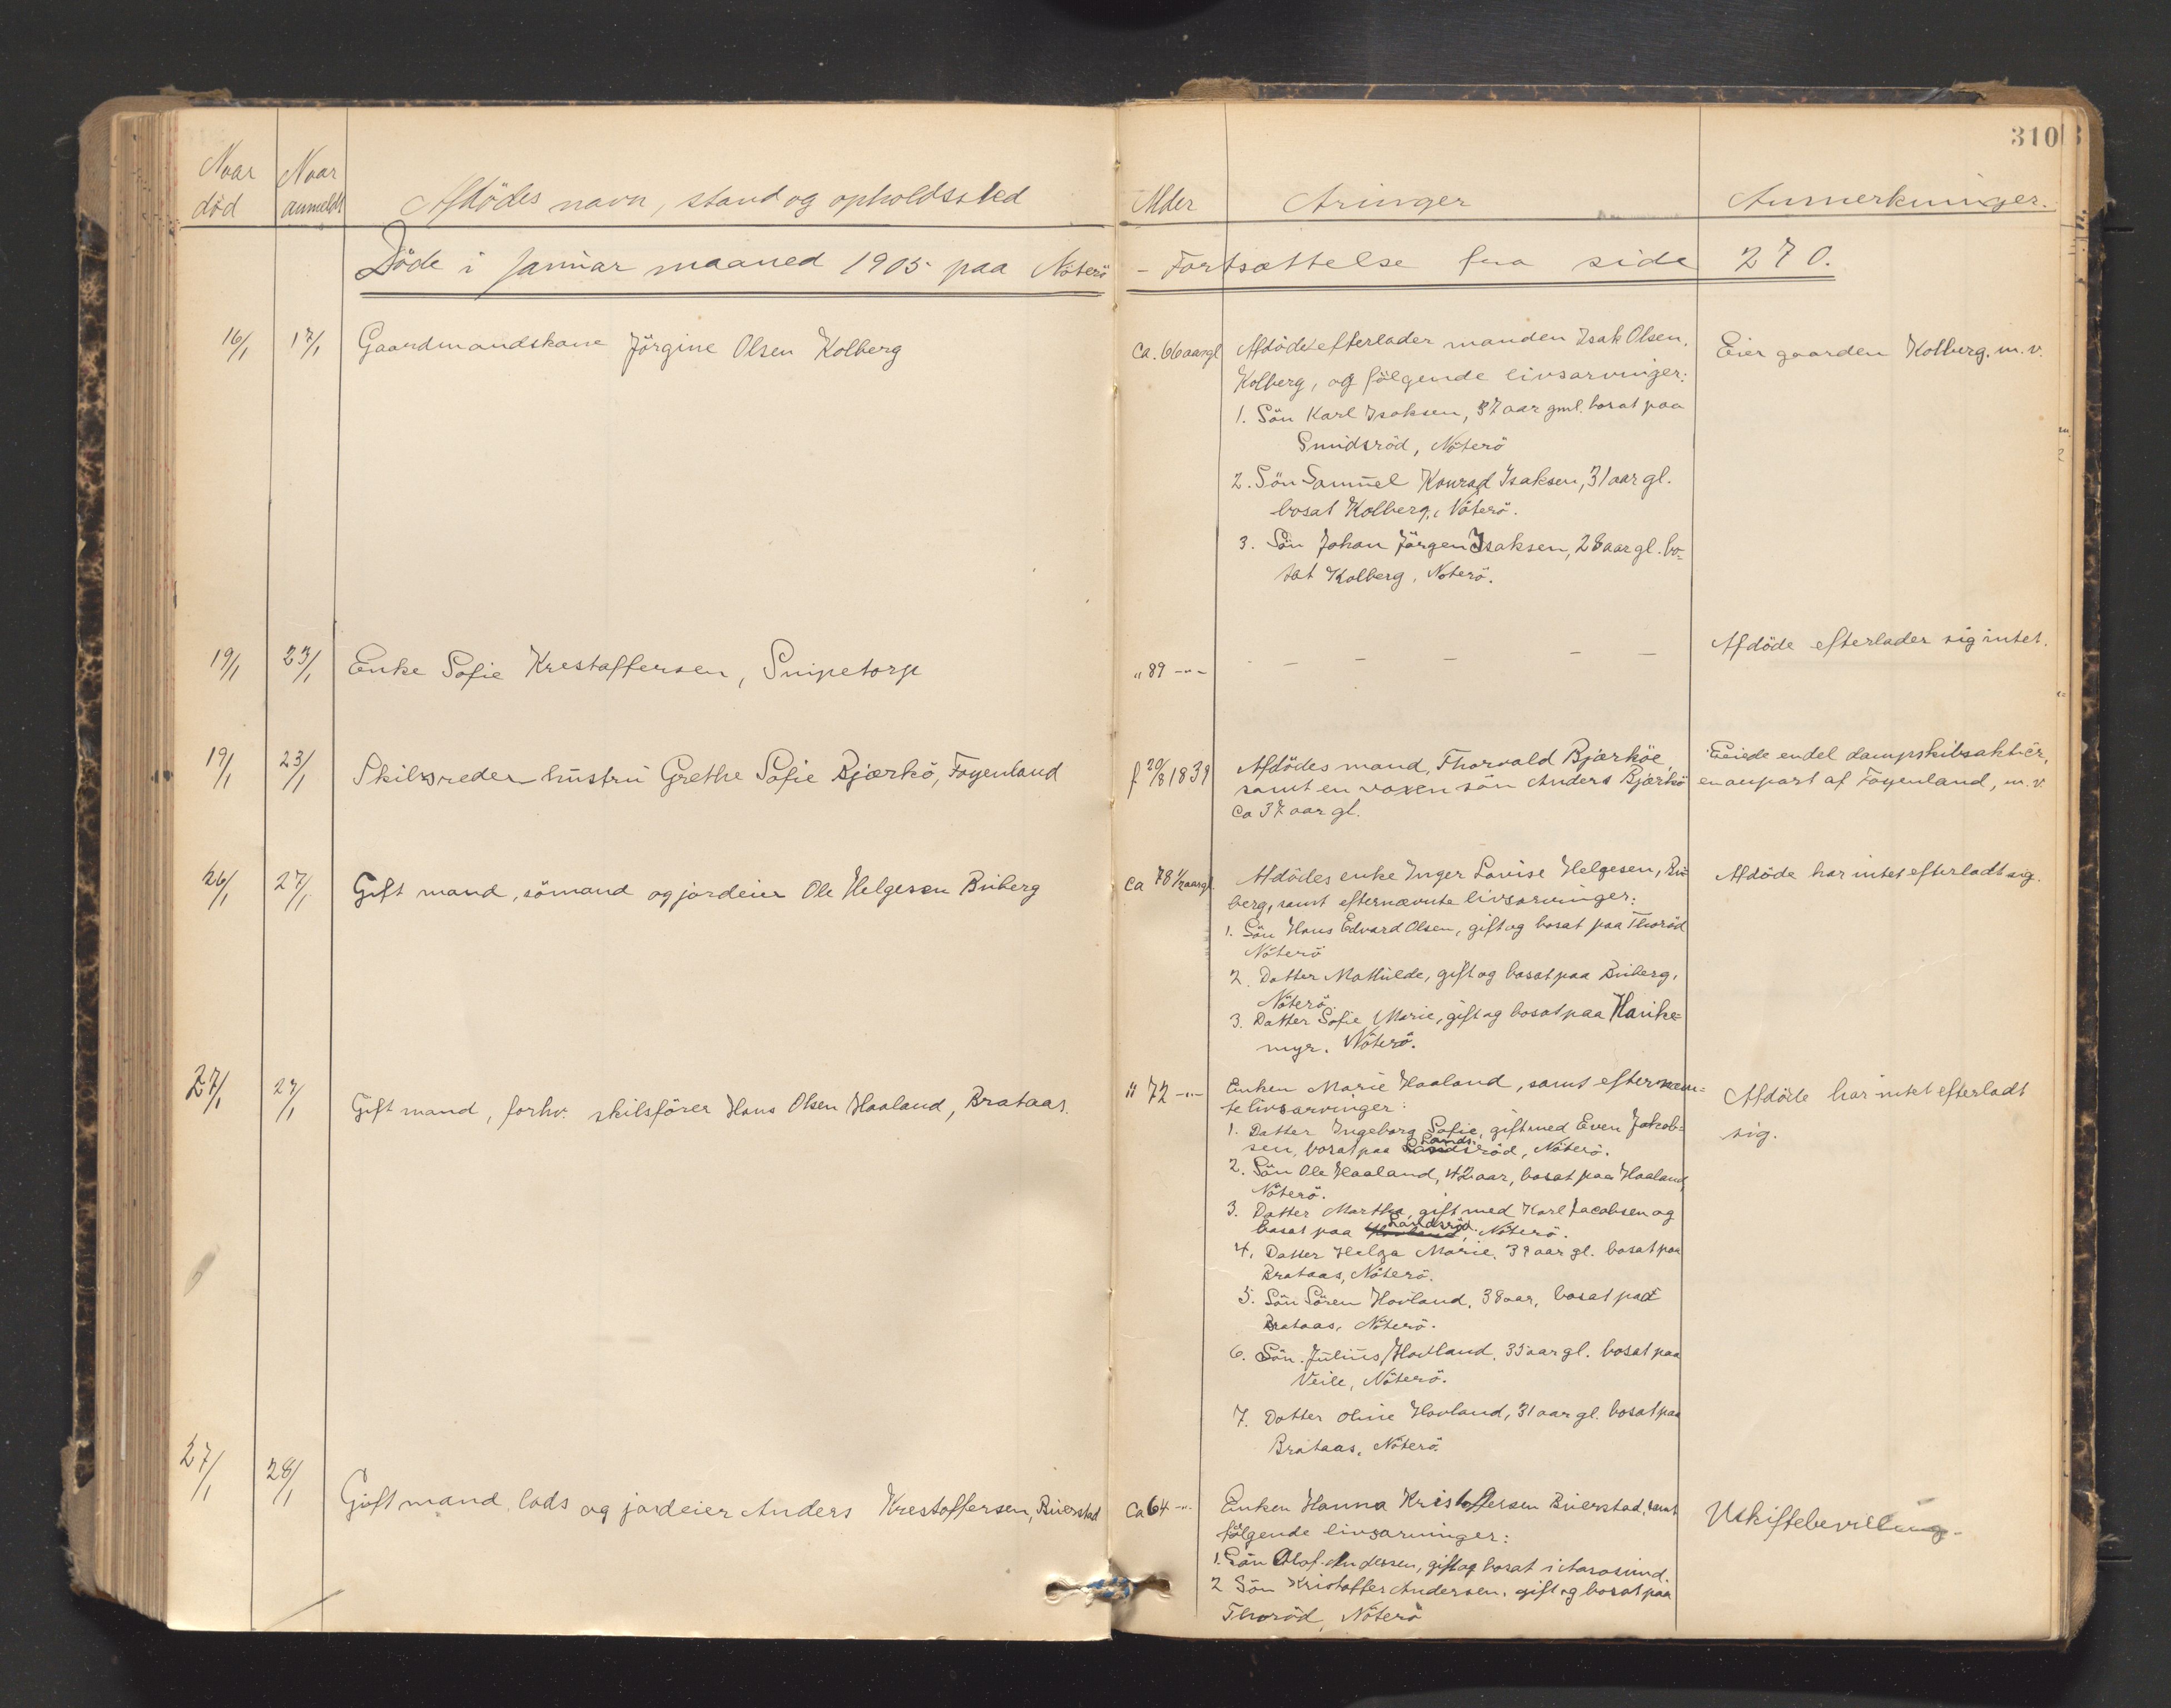 310
Naar død
Naar anmeldt
Afdödes navn, stand og opholdssted
Alder
Aringer
Anmerkninger.
Döde i Januar maaned 1905 paa Nöterö - Fortsættelse fra side 270.
16/1 17/1 Gaardmandskone Jörgine Olsen Kolberg
Ca. 66 aar gl
Afdöde efterlader manden Isak Olsen,
Kolberg, og fölgende livsarvinger:
1. Sön Karl Isaksen, 37 aar gml. bosat paa
Smidsröd, Nöterö
2. Sön Samuel Konrad Isaksen, 31 aar gl.
bosat Kolberg, Nöterö.
3. Sön Johan Jörgen Isaksen, 28 aar gl. bo-
sat Kolberg, Noterö.
Eier gaarden Kolberg. m.v.
19/1 23/1 Enke Sofie Krestoffersen, Snipetorp
" 89 -"-
- - - - - -
Afdöde efterlader sig intet.
19/1 23/1 Skibsreder hustru Grethe Sofie Bjærkö, Foyenland
f 20/8 1839
Afdödes mand, Thorvald Bjærköe,
samt en voxen sön Anders Bjærkö
Ca 37 aar gl.
Eiede endel dampskibsaktier,
en anpart af Foyenland, m.v.
26/1 27/1 Gift mand, sömand og jordeier Ole Helgesen Buberg
Ca 78 1/2 aar gl
Afdödes enke Inger Lovise Helgesen, Bu-
berg, samt efternævnte livsarvinger:
1. Sön Hans Edvard Olsen, gift og bosat paa Thoröd
Nöterö
2. Datter Mathilde, gift og bosat paa Buberg,
Nöterö.
3. Datter Sofie Marie, gift og bosat paa Hauke-
myr. Nöterö.
Afdöde har intet efterladt sig.
27/1 27/1 Gift mand, forhv. skibsförer Hans Olsen Haaland, Brataas.
" 72 -"-
Enken Marie Haaland, samt efternævn-
te livsarvinger:
1. Datter Ingeborg Sofie, gift med Even Jakob-
sen, bosat paa Sandsröd, Nöterö.
2. Sön Ole Haaland, 42 aar, bosat paa Haaland,
Nöterö.
3. Datter Martha, gift med Karl Jacobsen og
bosat paa Sandsröd, Nöterö.
4. Datter Helga Marie, 39 aar gl. bosat paa
Brataas, Nöterö.
5. Sön Sören Hovland, 38 aar, bosat paa
Brataas, Nöterö.
6. Sön Julius Hovland, 35 aar gl. bosat paa
Veile, Nöterö.
7. Datter Oline Hovland, 31 aar gl. bosat paa
Brataas, Nöterö.
Afdöde har intet efterladt
sig.
27/1 28/1 Gift mand, lods og jordeier Anders Krestoffersen, Buerstad
Ca 64 -"-
Enken Hanna Kristoffersen Buerstad, samt
fölgende livsarvinger:
1. Sön Olaf Andersen, gift og bosat i Aarösund.
2 Sön Kristoffer Andersen, gift og bosat paa
Thoröd, Nöterö
Uskiftebevilling.